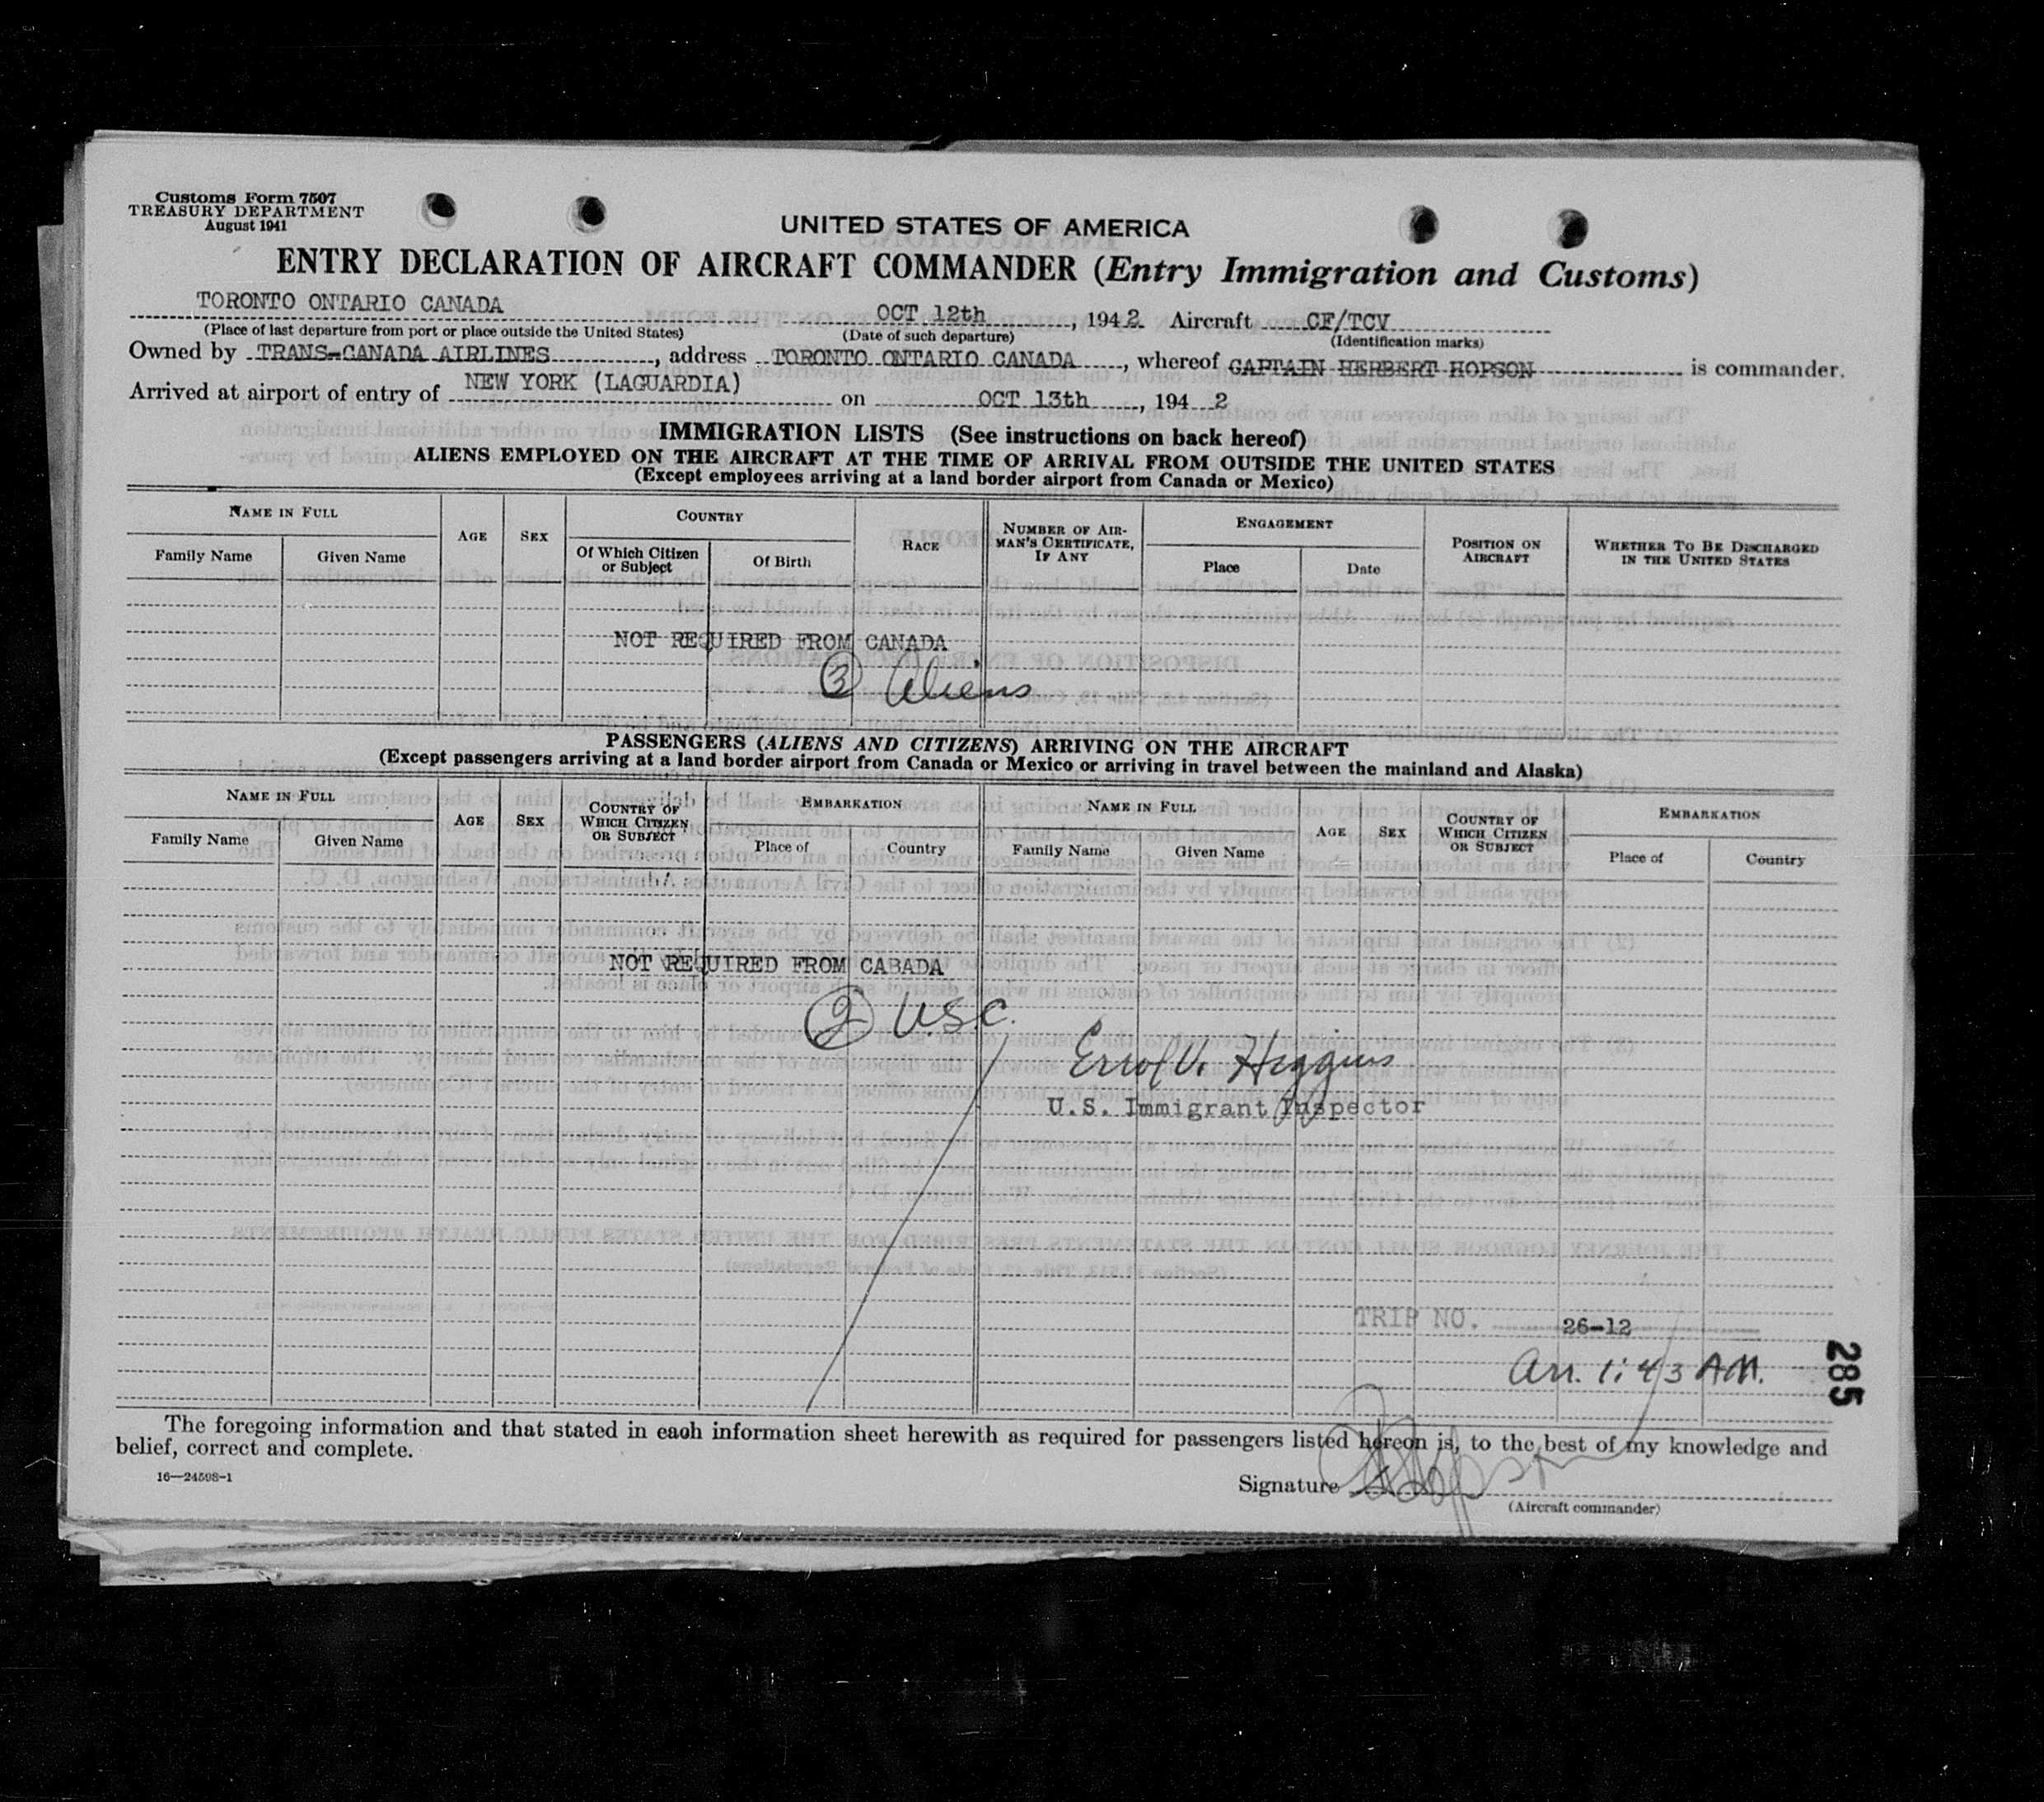 Customs Form 7507
TREASURY DEPARTMENT
August 1941
UNITED STATES OF AMERICA
ENTRY DECLARATION OF AIRCRAFT COMMANDER (Entry Immigration and Customs)
TORONTO ONTARIO CANADA OCT 12th, 1942 Aircraft CF/TCV
(Place of last departure from port or place outside the United States) (Date of such departure) (Identification marks)
Owned by TRANS-CANADA AIRLINES, address TORONTO ONTARIO CANADA, whereof CAPTAIN HERBERT HOPSON is commander.
Arrived at airport of entry of NEW YORK (LAGUARDIA) on OCT 13th, 194 2
IMMIGRATION LISTS (See instructions on back hereof)
ALIENS EMPLOYED ON THE AIRCRAFT AT THE TIME OF ARRIVAL FROM OUTSIDE THE UNITED STATES
(Except employees arriving at a land border airport from Canada or Mexico)
NAME IN FULL
Family Name Given Name
AGE
SEX
COUNTRY
Of Which Citizen or Subject
Of Birth
RACE
NUMBER OF AIRMAN'S CERTIFICATE, IF ANY
ENGAGEMENT
Place Date
POSITION ON AIRCRAFT
WHETHER TO BE DISCHARGED IN THE UNITED STATES
NOT REQUIRED FROM CANADA
3 Aliens
PASSENGERS (ALIENS AND CITIZENS) ARRIVING ON THE AIRCRAFT
(Except passengers arriving at a land border airport from Canada or Mexico or arriving in travel between the mainland and Alaska)
NAME IN FULL
Family Name Given Name
AGE
SEX
COUNTRY OF WHICH CITIZEN OR SUBJECT
EMBARKATION
Place of Country
NAME IN FULL
Family Name Given Name
AGE
SEX
COUNTRY OF WHICH CITIZEN OR SUBJECT
EMBARKATION
Place of Country
NOT REQUIRED FROM CABADA
2 U.S.C.
Errol V. Higgins
U.S. Immigrant Inspector
TRIP NO. 26-12
Arr. 1:43 AM.
285
The foregoing information and that stated in each information sheet herewith as required for passengers listed hereon is, to the best of my knowledge and
belief, correct and complete.
16—24598-1
Signature
(Aircraft commander)